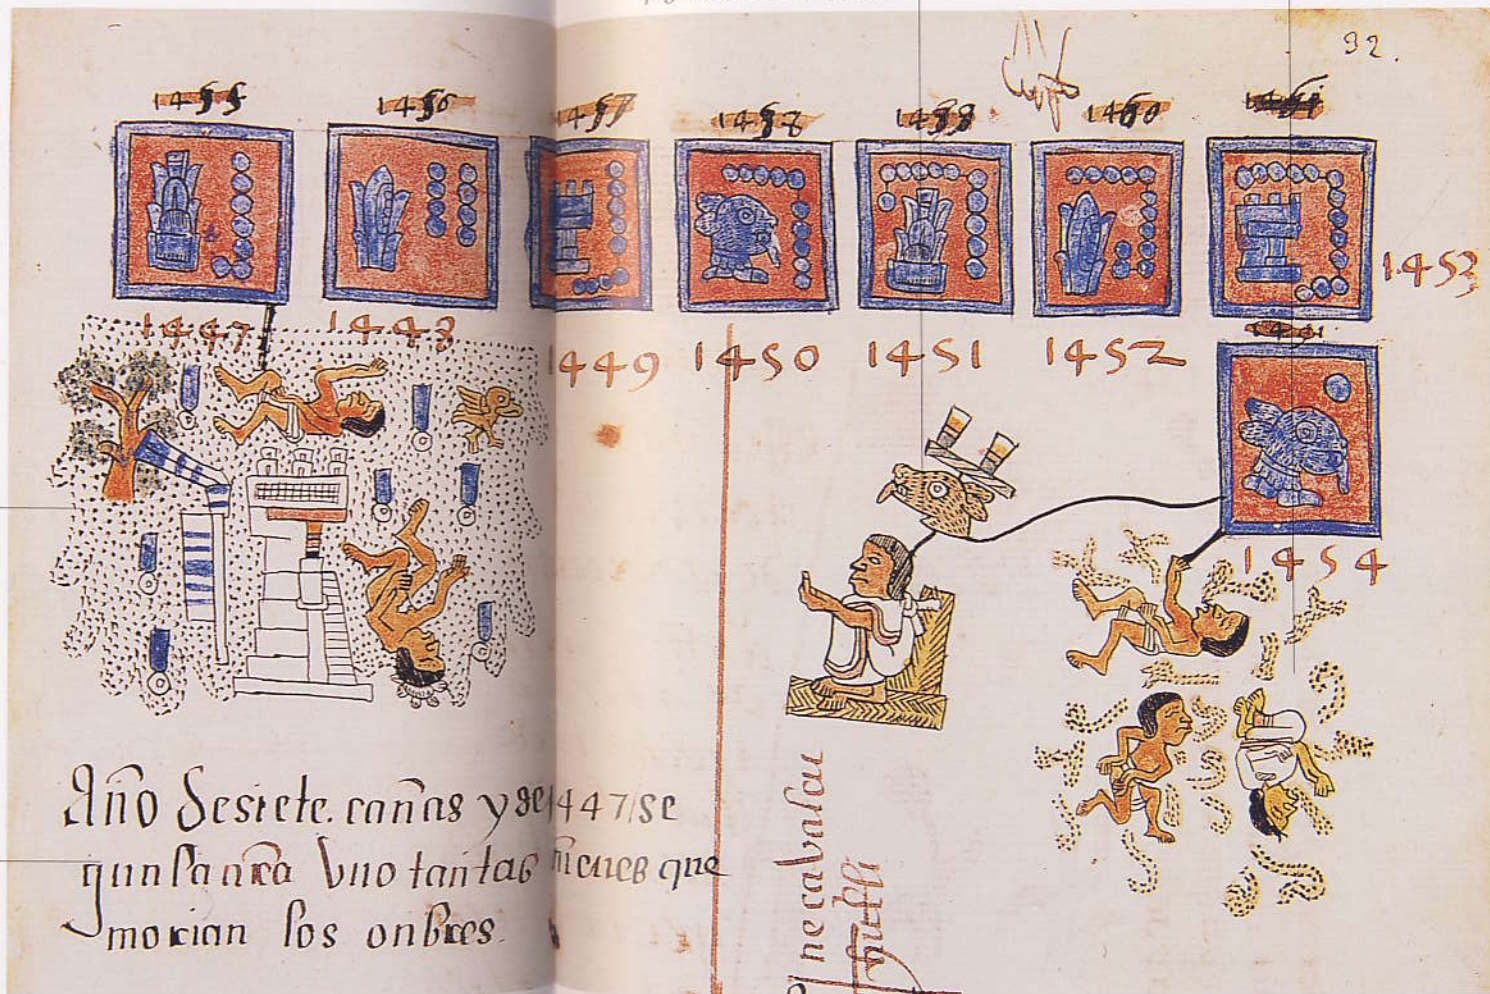 92.
1455 1456 1457 1458
1460
1447 1448 1449 1450 1451 1452 1453
1454
Año de siete. cañas y de 1447/se
gun la nra vuo tantas nieues que
morian los onbres.